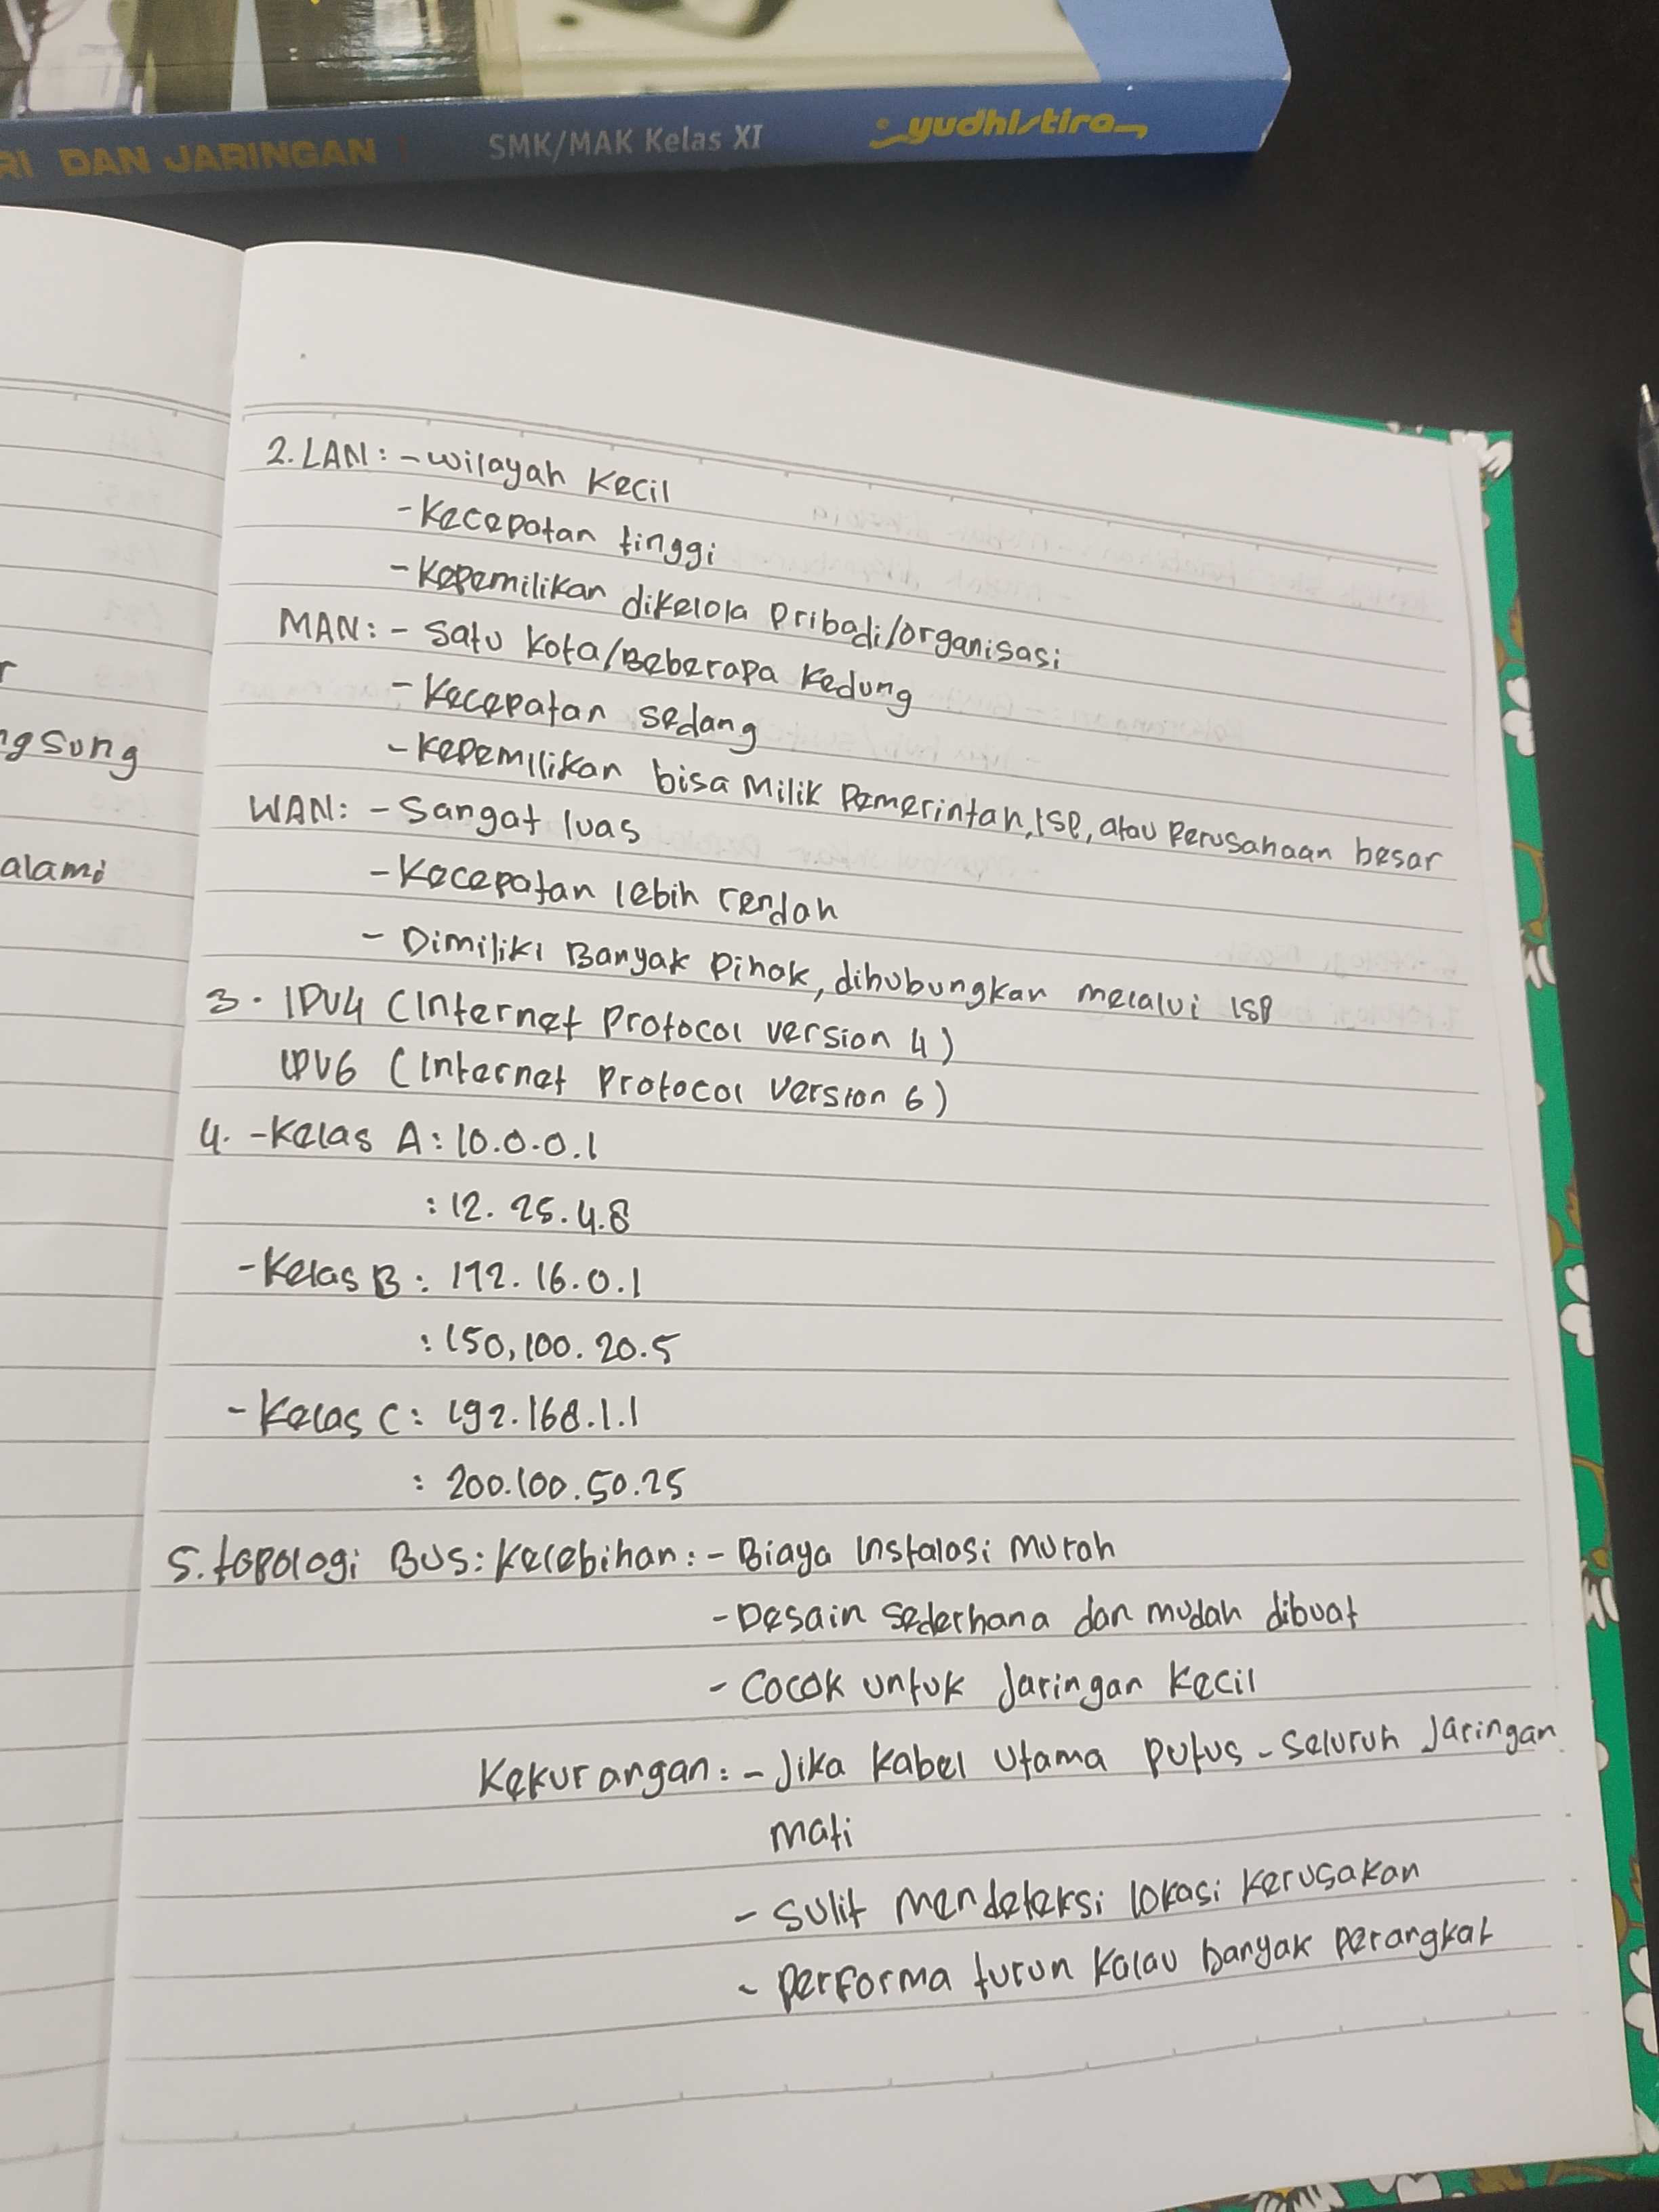 RI DAN JARINGAN SMK/MAK Kelas XI yudhistira
r
ngsung
alami
2. LAN : - wilayah Kecil
- Kecepatan tinggi
- Kepemilikan dikelola Pribadi/organisasi
MAN : - Satu Kota/Beberapa Kedung
- Kecepatan sedang
- Kepemilikan bisa Milik Pemerintah, ISP, atau Perusahaan besar
WAN : - Sangat luas
- Kecepatan lebih rendah
- Dimiliki Banyak Pihak, dihubungkan melalui ISP
3. IPV4 (Internet Protocol version 4)
IPV6 (Internet Protocol Version 6)
4. - Kelas A : 10.0.0.1
: 12. 25.4.8
- Kelas B : 172. 16.0.1
: 150,100. 20.5
- Kelas C : 192.168.1.1
: 200.100.50.25
5. topologi BUS : Kelebihan : - Biaya Instalasi Murah
- Desain sederhana dan mudah dibuat
- Cocok untuk Jaringan Kecil
Kekurangan : - Jika Kabel Utama putus - Seluruh Jaringan
mati
- Sulit Mendeteksi lokasi Kerusakan
- performa turun Kalau banyak perangkat